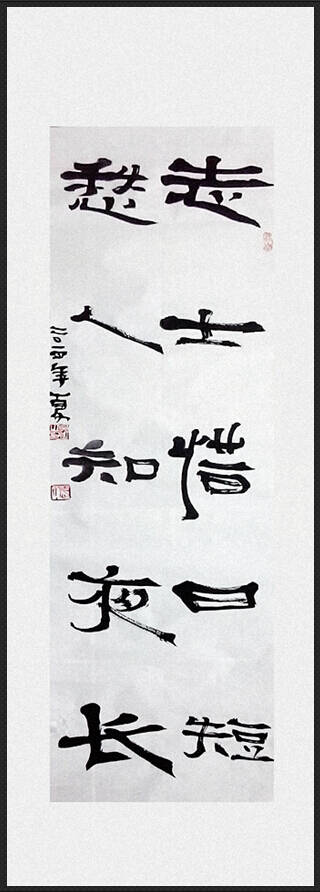 志士惜日短
愁人知夜长
二〇一四年夏